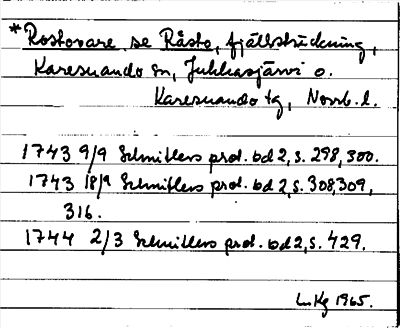 *Rostovare se Råsto, fjällsträckning,
Karesuando sn, Jukkasjärvi o.
Karesuando tg, Norrb. l.
1743 9/9 Schnitlers prot. bd 2, s. 298, 300.
1743 18/9 Schnitlers prot. bd 2, s. 308, 309,
316.
1744 2/3 Schnitlers prot. bd 2, s. 429.
1965.